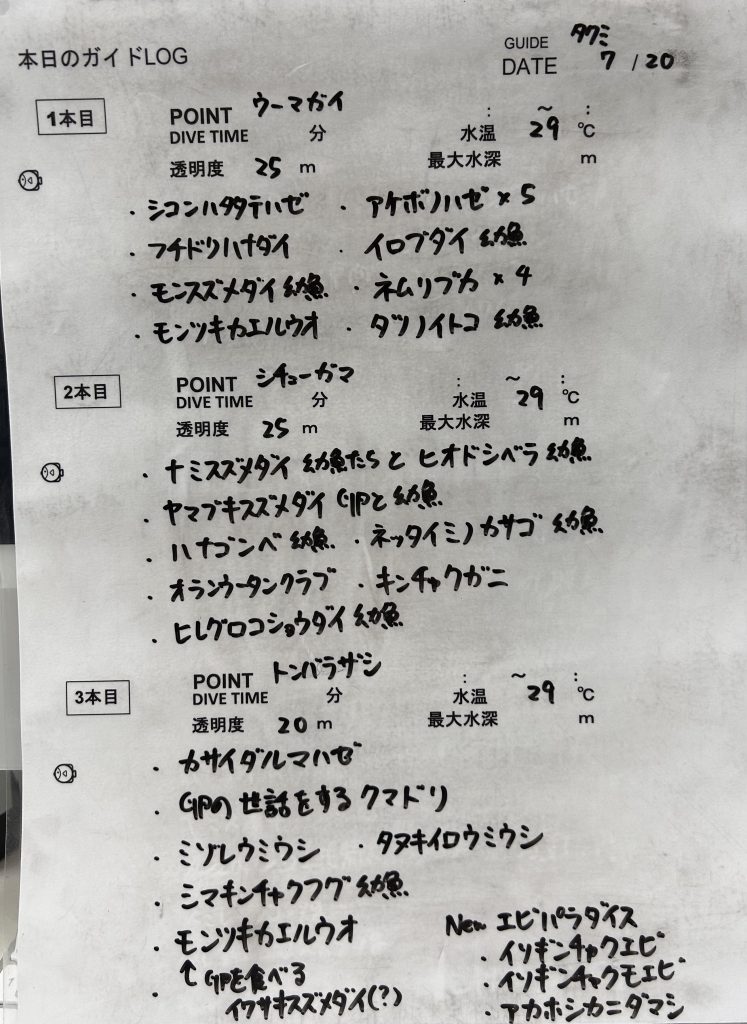 本日のガイドLOG
GUIDE タクミ
DATE 7 / 20
1本目
POINT ウーマガイ : ~ :
DIVE TIME 分 水温 29 ℃
透明度 25 m 最大水深 m
・シコンハタタテハゼ ・アケボノハゼ × 5
・フチドリハナダイ ・イロブダイ 幼魚
・モンスズメダイ 幼魚 ・ネムリブカ × 4
・モンツキカエルウオ ・タツノイトコ 幼魚
2本目
POINT シチューガマ : ~ :
DIVE TIME 分 水温 29 ℃
透明度 25 m 最大水深 m
・ナミスズメダイ 幼魚たちと ヒオドシベラ 幼魚
・ヤマブキスズメダイ GPと幼魚
・ハナゴンベ 幼魚 ・ネッタイミノカサゴ 幼魚
・オランウータンクラブ ・キンチャクガニ
・ヒレグロコショウダイ 幼魚
3本目
POINT トンバラザシ : ~ :
DIVE TIME 分 水温 29 ℃
透明度 20 m 最大水深 m
・カサイダルマハゼ
・GPの世話をするクマドリ
・ミゾレウミウシ ・タヌキイロウミウシ
・シマキンチャクフグ 幼魚
・モンツキカエルウオ
・↑GPを食べる
イワサキスズメダイ(?)
New エビパラダイス
・イソギンチャクエビ
・イソギンチャクモエビ
・アカホシカニダマシ